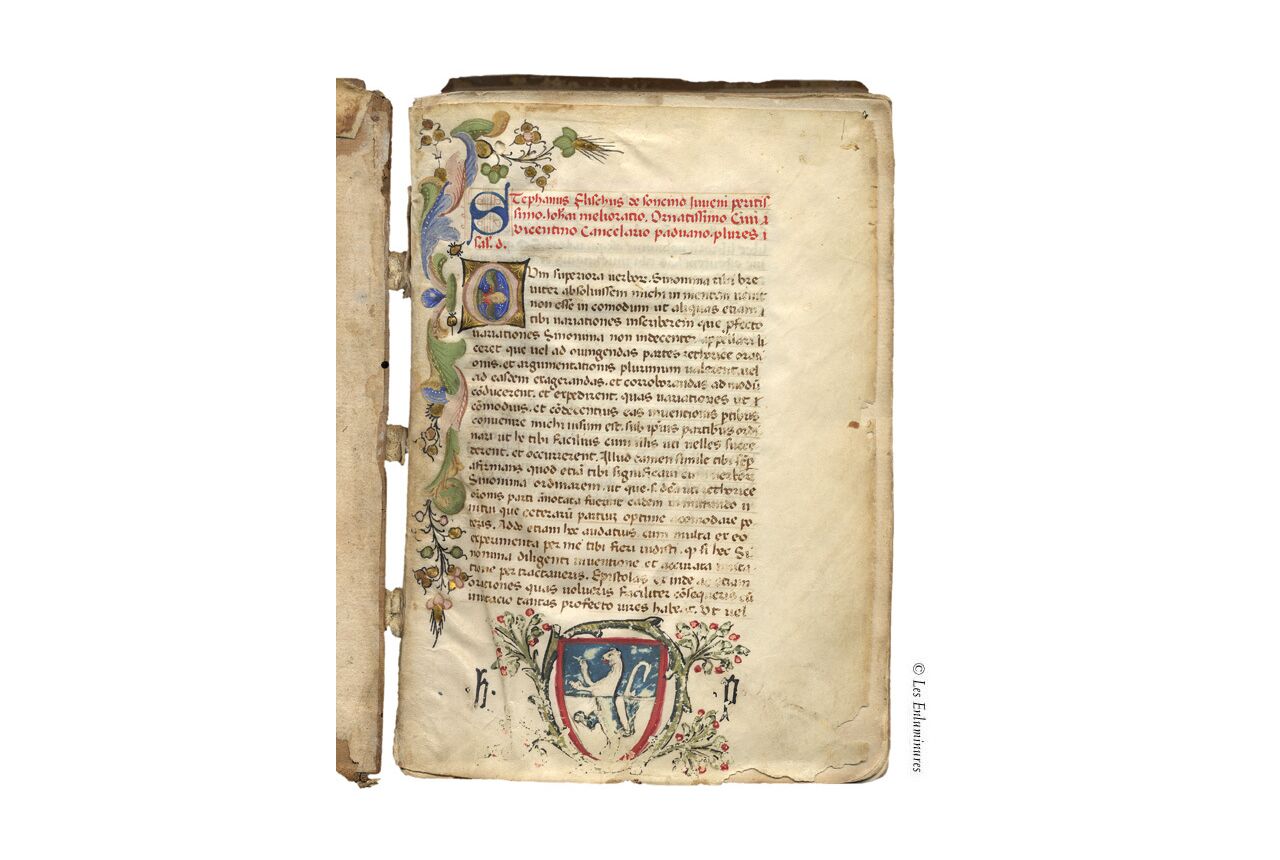 STephanus Flischus de soncino Iuveni peritis
simo. Iohãi melioratio. Ornatissimo Ciui.
vicentino Cancelario paduano. plures
sal. d.
CUm superiora uerbor. Sinonima tibi bre
uiter absoluissem michi in mentem uenit
non esse in comodum ut aliquas etiam
tibi uariationes inscriberem que pfecto
uariationes Sinonima non indecenter appellari li
ceret que uel ad iungendas partes rethorice orati
onis. et argumentationis plurimum ualerent. uel
ad easdem exagerandas. et corroborandas ad modũ
cõducerent. et expedirent. quas uariationes ut
cõmodius. et cõdecentius eas inuentionis ptibus
conuenire michi uisum est. sub ipsis partibus ordi
nari ut he tibi facilius cum illis uti uelles succe
rerent. et occurrerent. Illud tamen simile tibi semp
afirmans quod etiã tibi significaui cum uerbor
Sinonima ordinarem. ut que
orõnis parti ãnotata fuerint eadem in mutando
initui que ceterarũ partiũ optime acomodare po
teris. Addo etiam hoc audatius cum multa ex eo
experimenta per me tibi fieri uidisti. q si hec Si
nonima diligenti inuentione et accurata
tione per tractaueris. Epistolas et inde ac etiam
orationes quas uolueris faciliter cõsequeris cũ
imitacio tantas profecto uires habeat. Ut uel
h.
© Les Enluminures